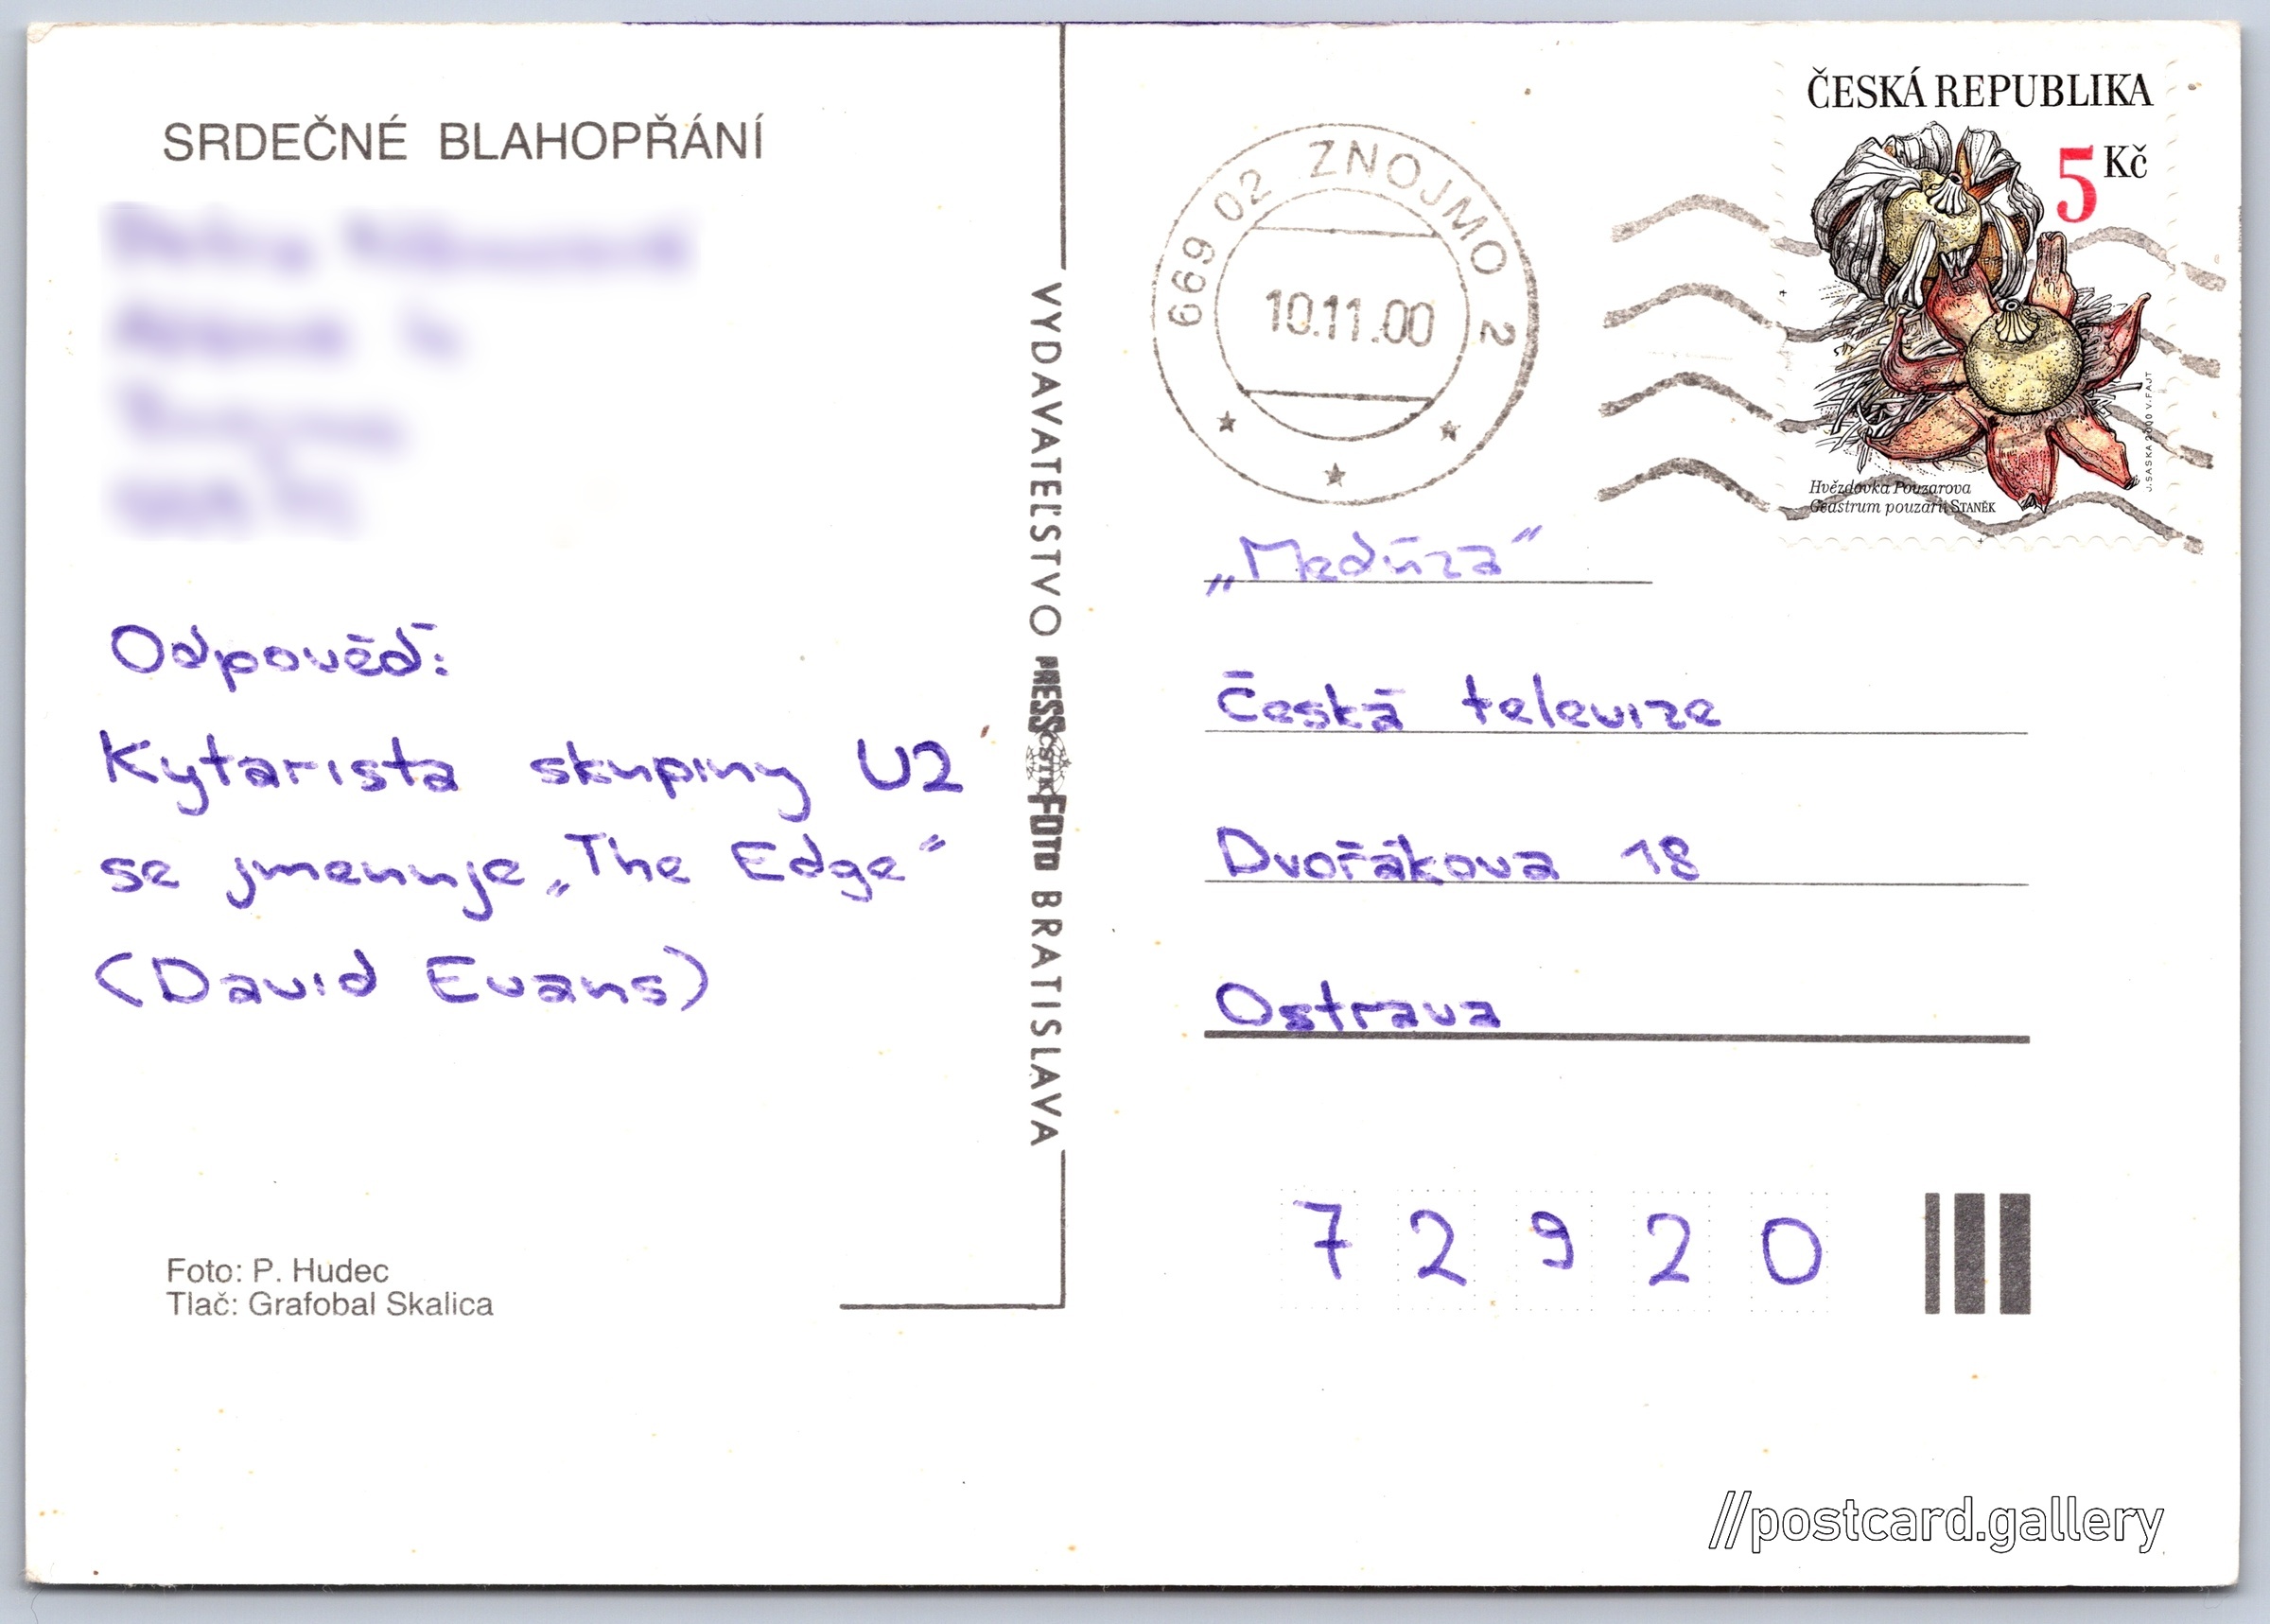 SRDEČNÉ BLAHOPŘÁNÍ
Odpověď:
Kytarista skupiny U2
se jmenuje „The Edge“
(David Evans)
Foto: P. Hudec
Tlač: Grafobal Skalica
VYDAVATEĽSTVO PRESSFOTO BRATISLAVA
ČSTK
669 02 ZNOJMO 2
10.11.00
ČESKÁ REPUBLIKA
5 Kč
Hvězdovka Pouzarova
Geastrum pouzarii STANĚK
J. SASKA 2000 V. FAJT
„Medúza“
Česká televize
Dvořákova 18
Ostrava
72920
//postcard.gallery